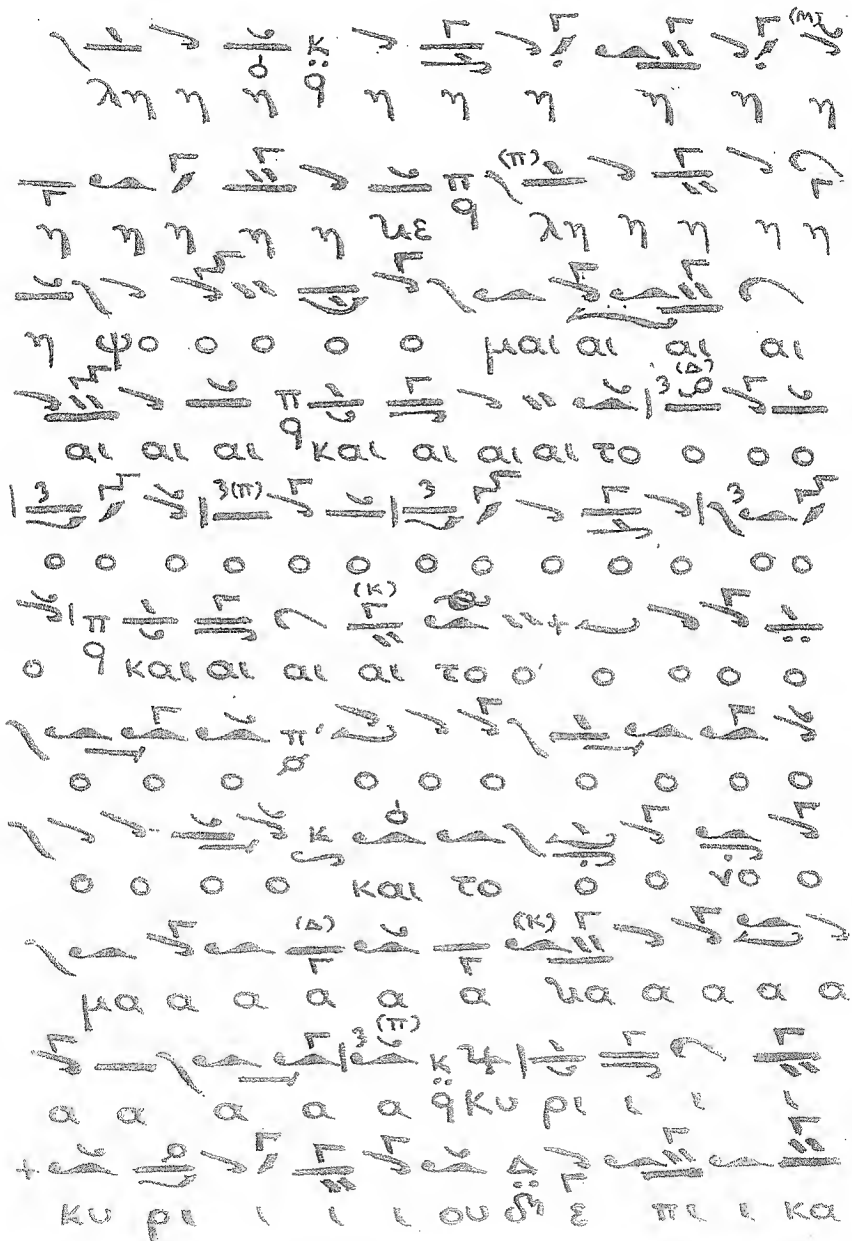 λη η η η η η η η η
η η η η η χε λη η η η η
η ψο ο ο ο ο μαι αι αι αι
αι αι αι και αι αι αι το ο ο ο
ο ο ο ο ο ο ο ο ο ο ο ο ο
ο και αι αι αι το ο ο ο ο ο
ο ο ο ο ο ο ο ο ο ο
ο ο ο ο και το ο ο νο ο
μα α α α α α χα α α α α
α α α α α Κυ ρι ι ι ι
κυ ρι ι ι ι ου ε πι ι κα